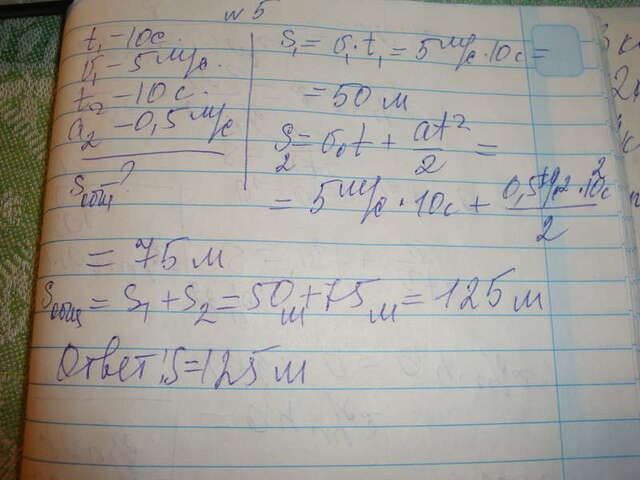 № 5
t₁ – 10 с.
v₁ – 5 м/с.
t₂ – 10 с.
a₂ – 0,5 м/с
Sобщ – ?
S₁ = v₁ · t₁ = 5 м/с · 10 с =
= 50 м
S₂ = v₀t + at²/2 =
= 5 м/с · 10 с + 0,5 м/с² · 10² с/2
= 75 м
Sобщ = S₁ + S₂ = 50 м + 75 м = 125 м
Ответ: S = 125 м